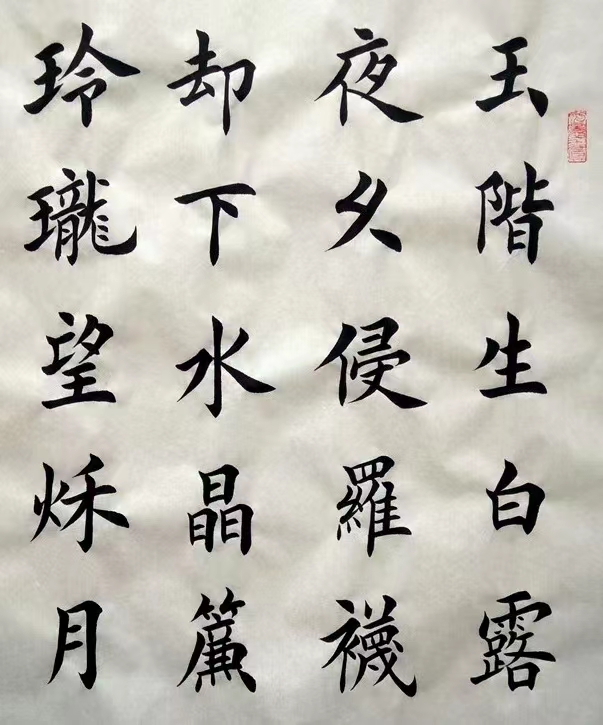 玉階生白露
夜久侵羅襪
却下水晶簾
玲瓏望秌月